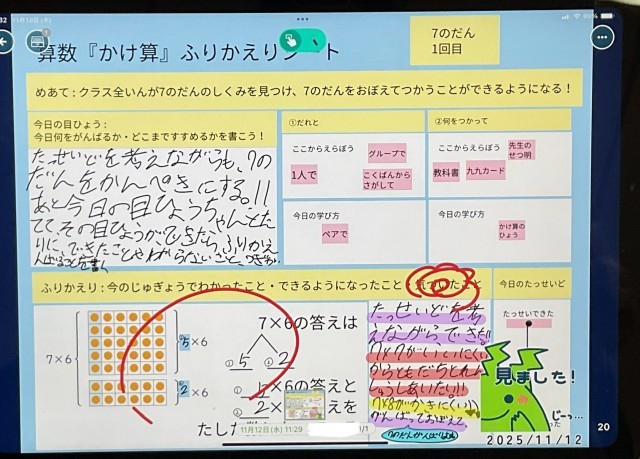 11月13日(木)
算数『かけ算』ふりかえりシート
7のだん
1回目
めあて:クラス全いんが7のだんのしくみを見つけ、7のだんをおぼえてつかうことができるようになる!
今日の目ひょう:
今日何をがんばるか・どこまですすめるかを書こう!
たっせいどを考えながらも、7の
だんをかんぺきにする。!!
あと今日の目ひょうちゃんとた
てて、その目ひょうができたら、ふりかえ
りに、できたことやわからないこと、
①だれと
ここからえらぼう
グループで
1人で
こくばんから
さがして
今日の学び方
ペアで
②何をつかって
ここからえらぼう
先生の
せつ明
教科書
九九カード
今日の学び方
かけ算の
ひょう
ふりかえり:今のじゅぎょうでわかったこと・できるようになったこと・気づいたこと
今日のたっせいど
7×6
5×6
2×6
7×6の答えは
① 5 ② 2
① 5×6の答えと
② 2×
えを
たし
たっせいどを考
えながらできた!
7×7がいいにくい
からともだちとれん
しゅうしあいたい!!
7×8がかきにくい
がんばっておぼえて
7のだんがんばりま
たっせいできた
見ました!
じーっ…
2025/11/12
11月12日(水) 11:29
1/1
20